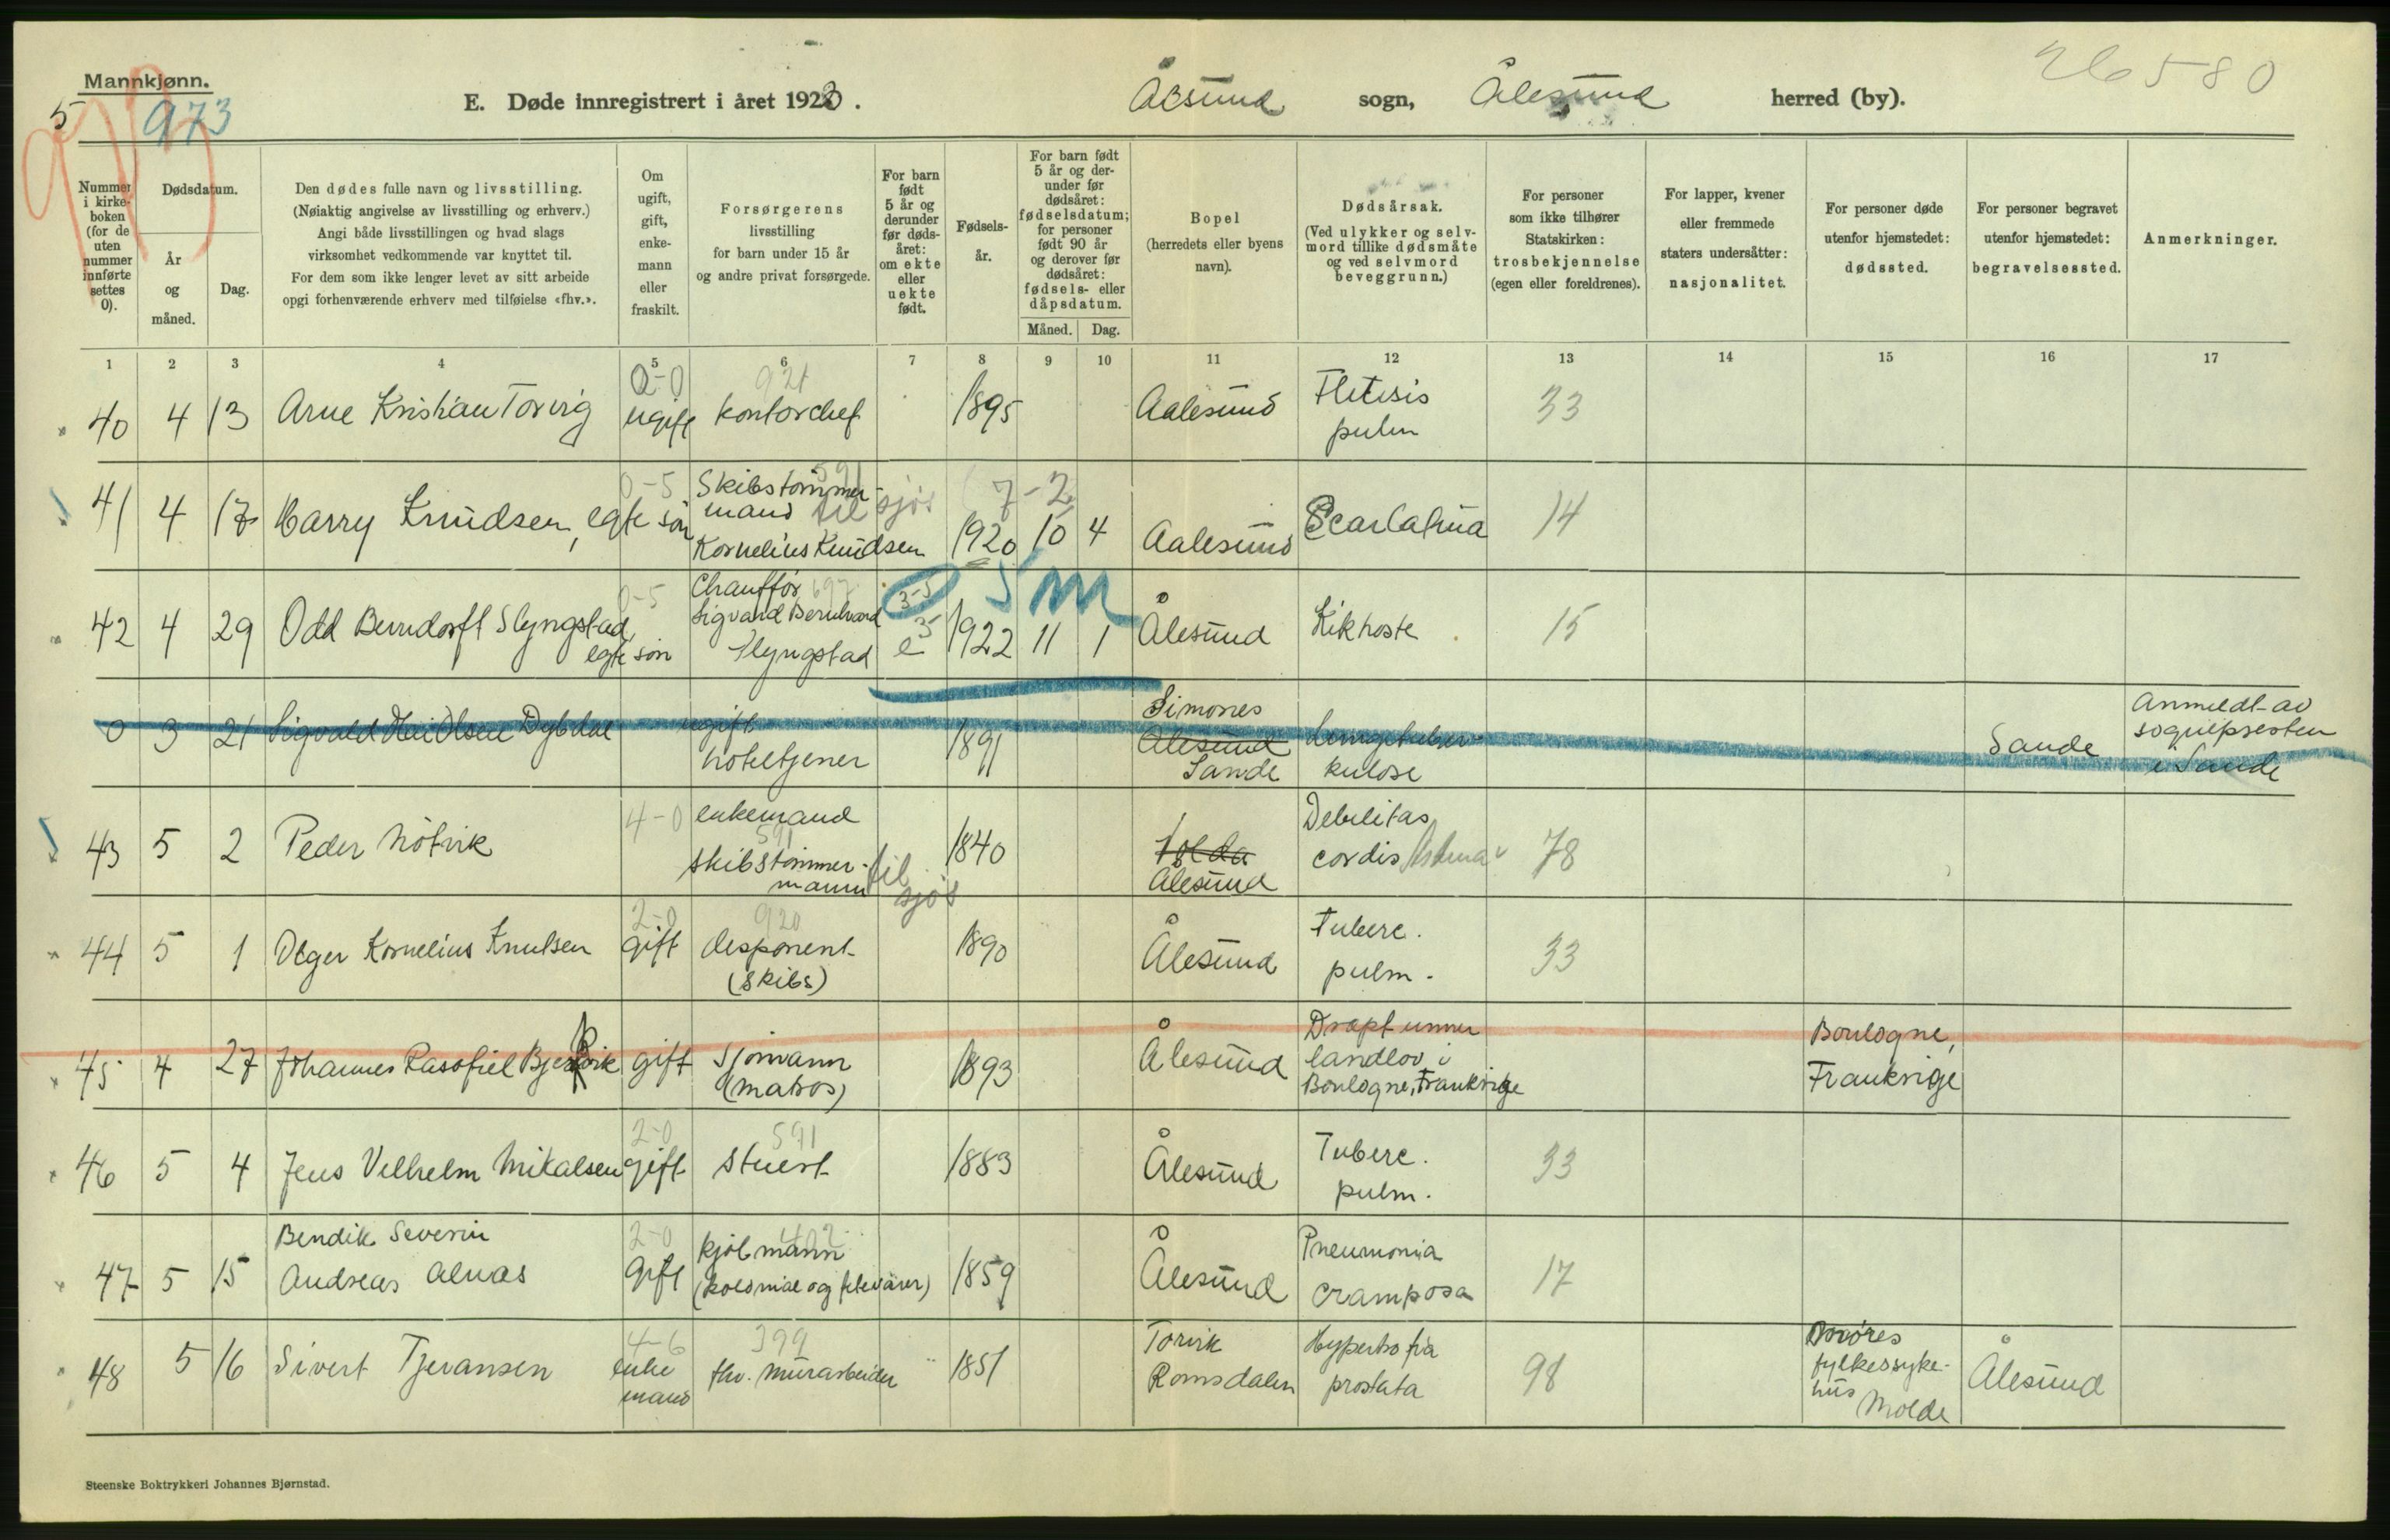 Mannkjønn.
5 973
E. Døde innregistrert i året 1923.
Ålesund sogn, Ålesund herred (by).
26580
Nummer i kirkeboken (for de uten nummer innførte settes 0).
Dødsdatum.
År og måned.
Dag.
Den dødes fulle navn og livsstilling.
(Nøiaktig angivelse av livsstilling og erhverv.)
Angi både livsstillingen og hvad slags
virksomhet vedkommende var knyttet til.
For dem som ikke lenger levet av sitt arbeide
opgi forhenværende erhverv med tilføielse «fhv.».
Om ugift, gift, enkemann eller fraskilt.
Forsørgerens
livsstilling
for barn under 15 år
og andre privat forsørgede.
For barn født 5 år og derunder før dødsåret: om ekte eller uekte født.
Fødselsår.
For barn født 5 år og derunder før dødsåret: fødselsdatum; for personer født 90 år og derover før dødsåret: fødsels- eller dåpsdatum.
Måned. Dag.
Bopel
(herredets eller byens
navn).
Dødsårsak.
(Ved ulykker og selvmord tillike dødsmåte og ved selvmord beveggrunn.)
For personer
som ikke tilhører
Statskirken:
trosbekjennelse
(egen eller foreldrenes).
For lapper, kvener
eller fremmede
staters undersåtter:
nasjonalitet.
For personer døde
utenfor hjemstedet:
dødssted.
For personer begravet
utenfor hjemstedet:
begravelsessted.
Anmerkninger.
1 2 3 4 5 6 7 8 9 10 11 12 13 14 15 16 17
0-0 921
40 4 13 Arne Kristian Torvig ugift kontorchef 1895 Aalesund Ftitisis pulm 33
0-5 591 7-2
41 4 17 Harry Knudsen, egte søn Skibstømmermand til sjøs Kornelius Knudsen 1920 10 4 Aalesund Scarlatina 14
0-5 697 3-5 5 m
42 4 29 Odd Berndorft Slyngstad, egte søn Chauffør Sigvard Bernhard Slyngstad e 1922 11 1 Ålesund Kikhoste 15
0 3 21 Sigvald Olsen Dybdal ugift hoteltjener 1891 Simones Ålesund Sande Lungetuberkulose Sande Anmeldt av sognepresten i Sande
4-0 591
43 5 2 Peder Nötvik enkemand skibstømmermann til sjøs 1840 Ålesund Debilitas cordis 78
2-0 920
44 5 1 Olger Kornelius Knutsen gift disponent (skibs) 1890 Ålesund Tuberc. pulm. 33
45 4 27 Johannes Rasofiel Bjerkvik gift Sjømann (matros) 1893 Ålesund Drept under landlov i Boulogne, Frankrige Boulogne, Frankrige
2-0 591
46 5 4 Jens Vilhelm Mikalsen gift Stuert 1883 Ålesund Tuberc. pulm. 33
2-0 402
47 5 15 Bendik Severin Andreas Alnas gift kjøbmann (kolonial og fetevarer) 1859 Ålesund Pneumonia cramposa 17
4-6 399
48 5 16 Sivert Tjevansen enkemand fhv. murarbeider 1851 Torvik Romsdalen Hypertrofia prostata 98 fylkessykehus Molde Ålesund
Steenske Boktrykkeri Johannes Bjørnstad.